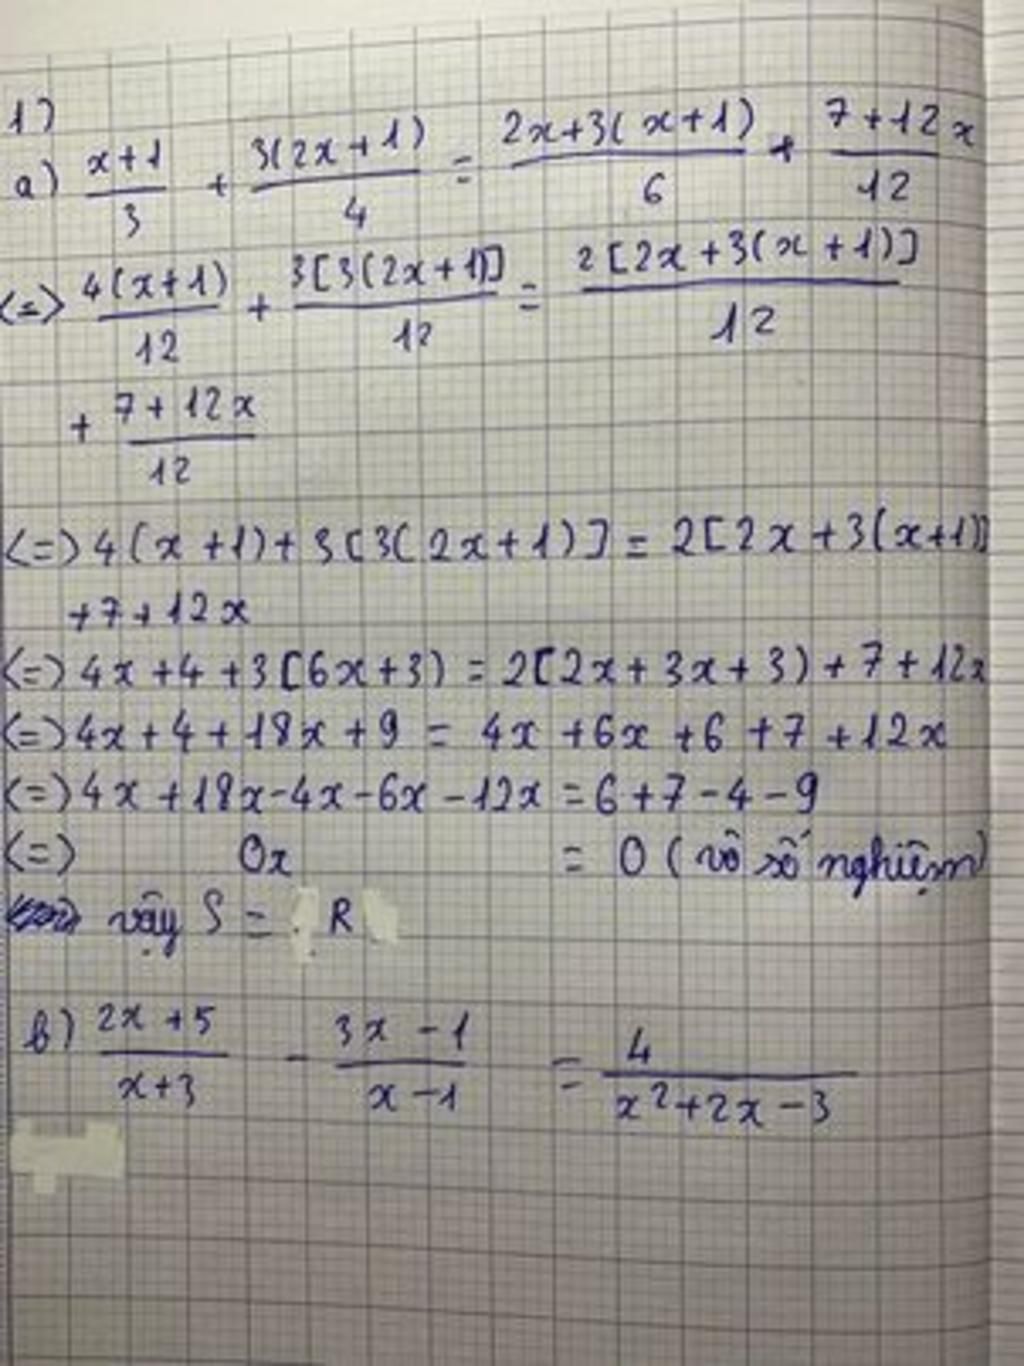 1)
a) \frac{x+1}{3} + \frac{3(2x+1)}{4} = \frac{2x+3(x+1)}{6} + \frac{7+12x}{12}
<=> \frac{4(x+1)}{12} + \frac{3[3(2x+1)]}{12} = \frac{2[2x+3(x+1)]}{12}
+ \frac{7+12x}{12}
<=> 4(x+1)+3[3(2x+1)] = 2[2x+3(x+1)]
+7+12x
<=> 4x+4+3[6x+3) = 2[2x+3x+3)+7+12x
<=> 4x+4+18x+9 = 4x+6x+6+7+12x
<=> 4x+18x-4x-6x-12x = 6+7-4-9
<=> 0x = 0 (vô số nghiệm)
vậy S = R
b) \frac{2x+5}{x+3} - \frac{3x-1}{x-1} = \frac{4}{x^2+2x-3}